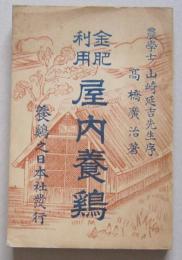 農學士 山崎延吉先生序
髙橋廣治著
金肥利用
屋内養鶏
養鶏之日本社發行